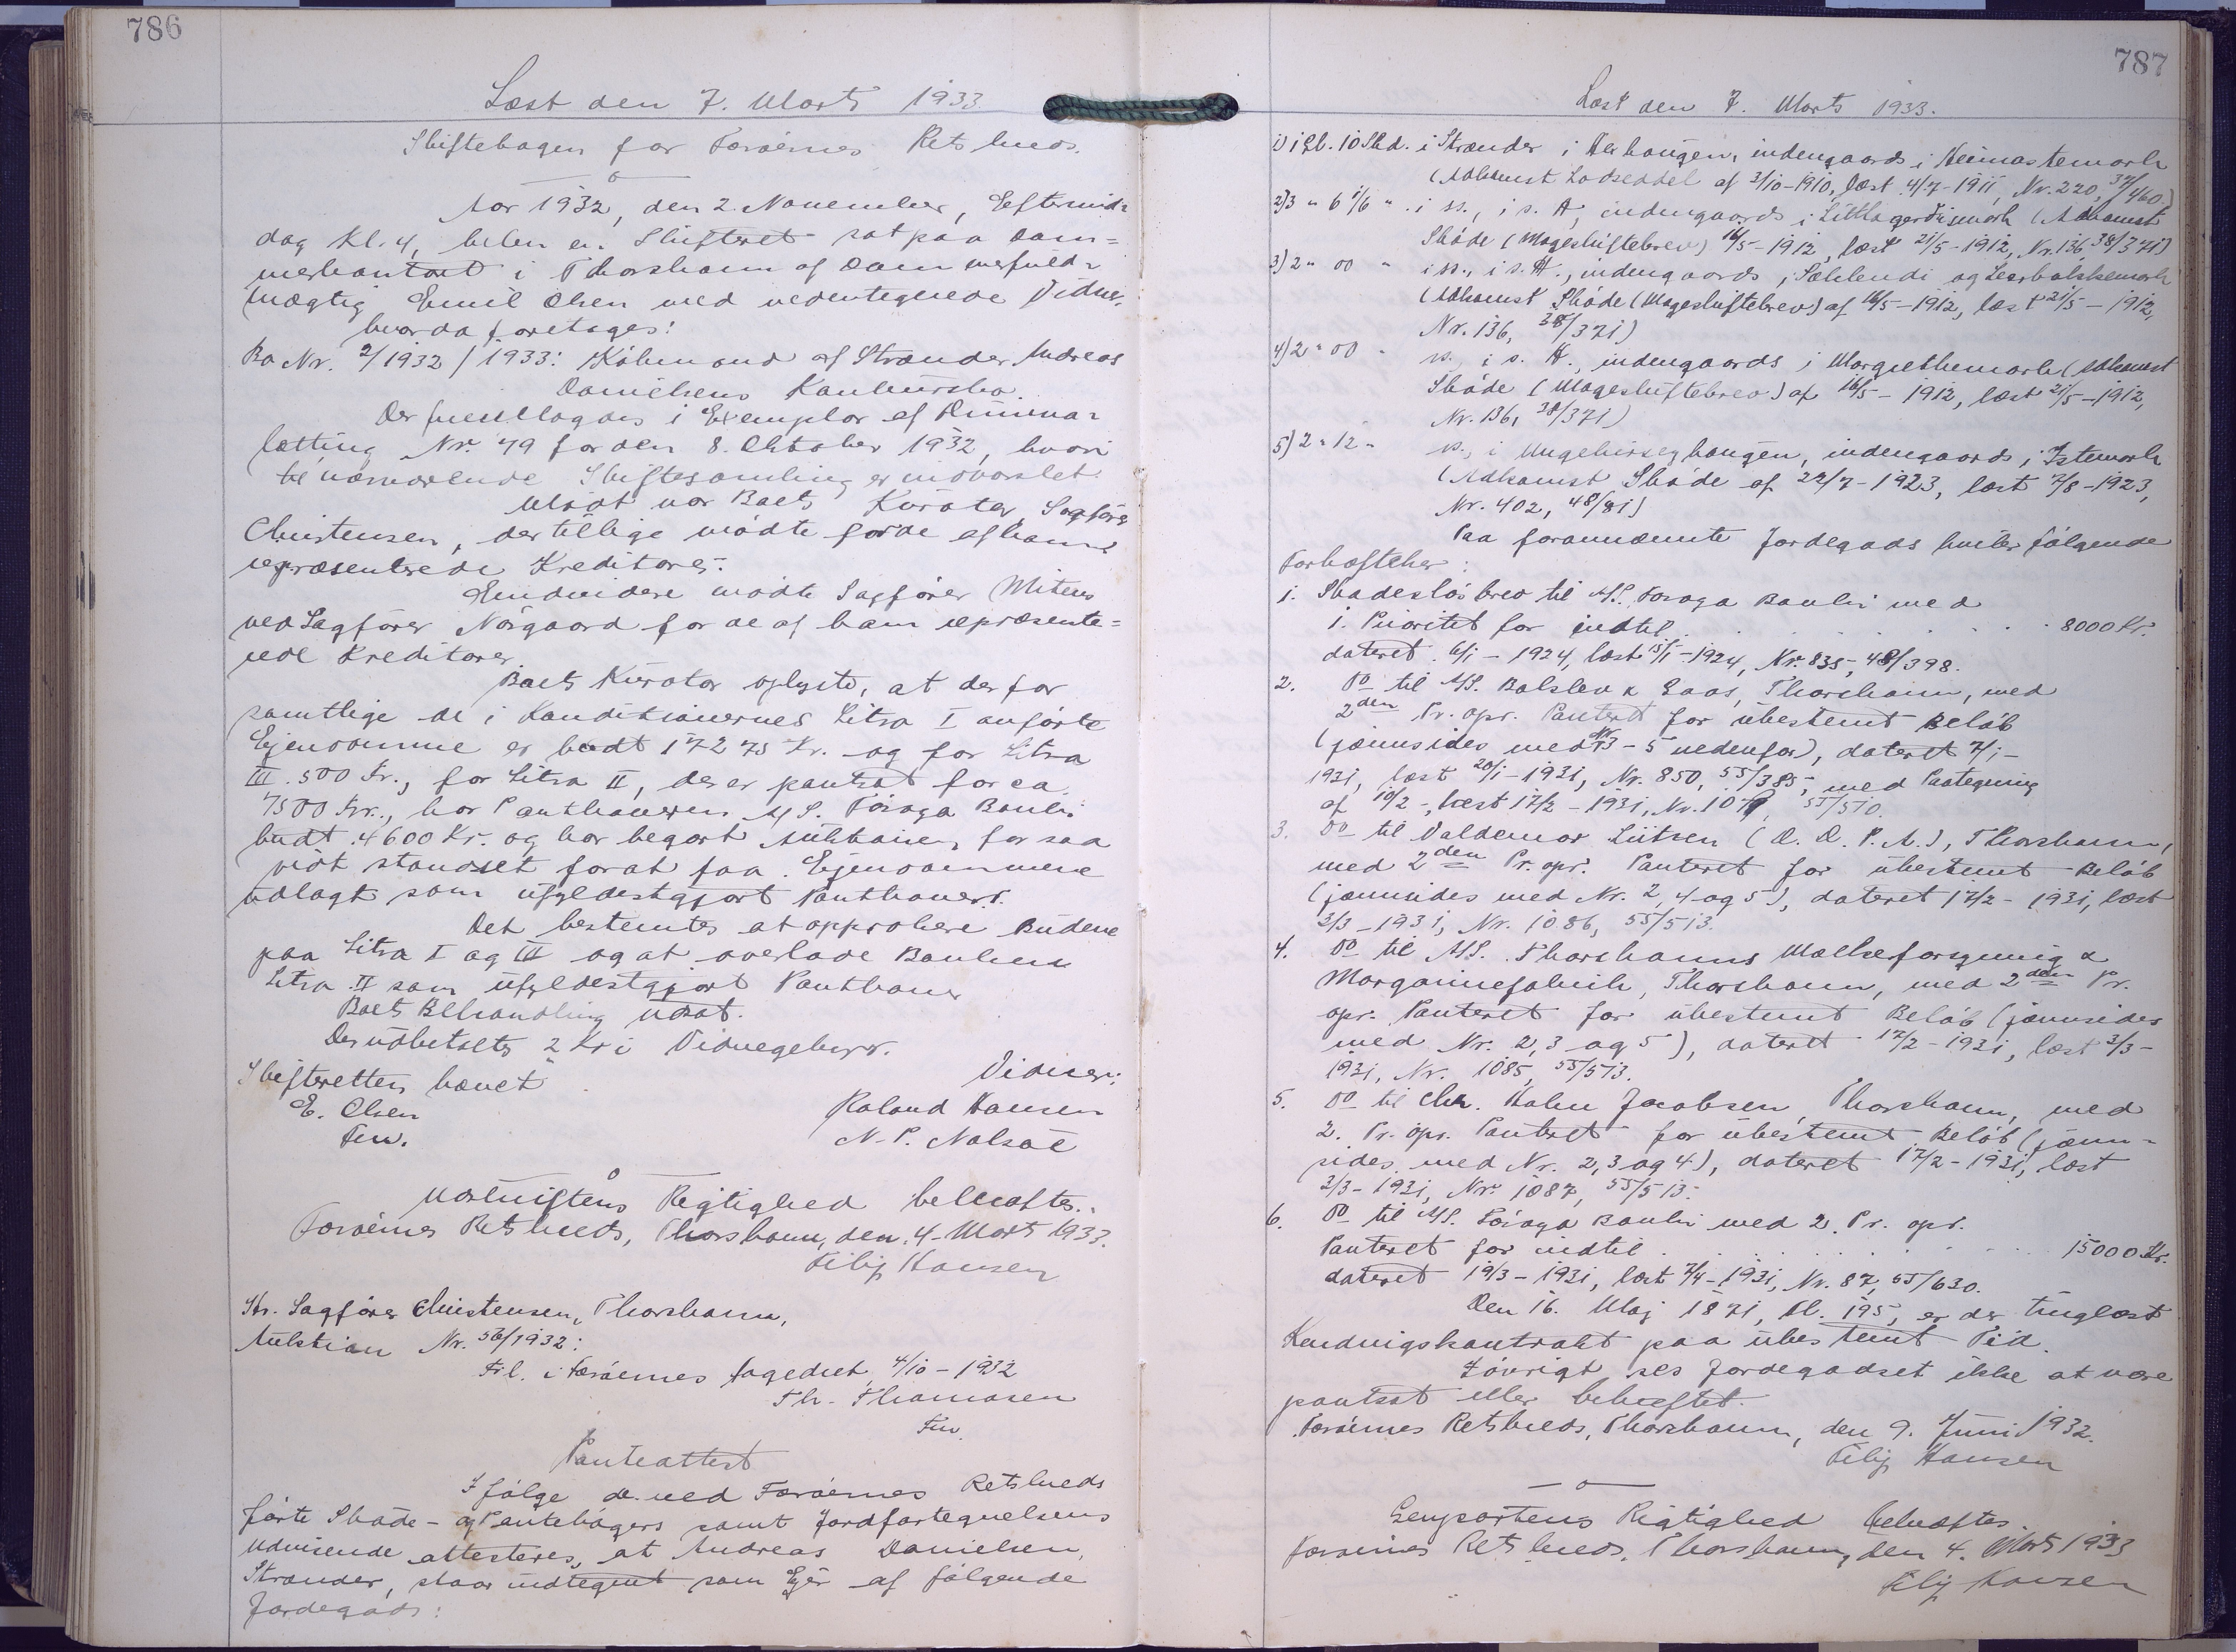 786
Læst den 7. Marts 1933.
Skiftebogen for Færøernes Retskreds.
Aar 1932, den 2. November, Eftermid-
dag Kl. 4, blev en Skifteret sat paa Dom-
merkontoret i Thorshavn af Dommerfuld-
mægtig Emil Olsen med undertegnede Vidner,
hvorda foretages:
Bo Nr. 2/1932/1933: Købmand af Strænder Andreas
Danielsens Konkursbo.
Der fremlagdes 1 Exemplar af Dimma-
lætting Nr. 79 for den 8. Oktober 1932, hvori
til nærværende Skiftesamling er indvarslet.
Mødt var Boets Kurator, Sagfører
Christensen, der tillige mødte for de af ham
repræsenterede Kreditorer.
Endvidere mødte Sagfører Mitens
ved Sagfører Nórgaard for de af ham repræsente-
rede Kreditorer.
Boets Kurator oplyste, at der for
samtlige de i Konditionernes Litra I anførte
Ejendomme er budt 17275 Kr. og for Litra
III. 500 Kr., for Litra II, der er pantsat for ca.
7500 Kr., har Panthaveren A/S. Føroya Banki
budt 4600 Kr. og har begært Auktionen for saa
vidt standset for at faa Ejendommene
udlagt som ufyldestgjort Panthaver.
Det bestemtes at approbere Budene
paa Litra I og III og at overlade Banken
Litra II som ufyldestgjort Panthaver
Boets Behandling udsat.
Der udbetaltes 2 Kr i Vidnegebyr.
Skifteretten hævet
Vidner:
E. Olsen
Roland Hansen
Fm.
N. P. Nolsøe
Udskriftens Rigtighed bekræftes.
Færøernes Retskreds, Thorshavn, den 4. Marts 1933.
Filip Hansen
Hr. Sagfører Christensen, Thorshavn,
Auktion Nr. 56/1932:
Frl. i Færøernes Fogedret, 4/10 - 1932
Th. Thomasen
Fm.
Panteattest
Ifølge de ved Færøernes Retskreds
førte Skøde- og Pantebøgers samt Jordfortegnelsens
Udvisende attesteres, at Andreas Danielsen,
Strænder, staar indtegnet som Ejer af følgende
Jordegods:
787
Læst den 7. Marts 1933.
1) 1 Gl. 10 Skd. i Strænder i Herhaugen, indengaards i Heimastemark
(Adkomst Lodseddel af 3/10-1910, læst 4/7-1911, Nr. 220, 37/460)
2) 3 " 6 1/6 " i ss., i s. H., indengaards i Littlagerdismark (Adkomst
Skøde (Mageskiftebrev) 16/5-1912, læst 21/5-1912, Nr. 136, 38/371)
3) 2 " 00 " i ss., i s. H., indengaards i og
(Adkomst Skøde (Mageskiftebrev) af 16/5-1912, læst 21/5-1912,
Nr. 136, 38/371)
4) 2 " 00 " ss., i s. H., indengaards i Margrethemark (Adkomst
Skøde (Mageskiftebrev) af 16/5-1912, læst 21/5-1912,
Nr. 136, 38/371)
5) 2 " 12 " ss., i, indengaards i Istemark
(Adkomst Skøde af 27/7-1923, læst 7/8-1923,
Nr. 402, 48/81)
Paa forannævnte Jordegods hviler følgende
Forhæftelser:
1. Skadesløsbrev til A/S. Føroya Banki med
1. Prioritet for indtil . . . . . 8000 Kr.
dateret 6/1 - 1924, læst 15/1-1924, Nr. 835, 48/398.
2. Do til A/S. Balslev & Gaas, Thorshavn, med
2den Pr. opr. Panteret for ubestemt Beløb
(jævnsides med Nr 3-5 nedenfor), dateret 7/1-
1931, læst 20/1-1931, Nr. 850, 55/385, med Paategning
af 10/2-, læst 17/2-1931, Nr. 1079, 55/510.
3. Do til Valdemar Lützen (D. D. P. A.), Thorshavn,
med 2den Pr. opr. Panteret for ubestemt Beløb
(jævnsides med Nr. 2, 4 og 5), dateret 17/2-1931, læst
3/3-1931, Nr. 1086, 55/513.
4. Do til A/S. Thorshavns Mælkeforsyning &
Margarinefabrik, Thorshavn, med 2den Pr.
opr. Panteret for ubestemt Beløb (jævnsides
med Nr. 2, 3 og 5), dateret 17/2-1931, læst 3/3-
1931, Nr. 1085, 55/513.
5. Do til Chr. Holm Jacobsen, Thorshavn, med
2. Pr. opr. Panteret for ubestemt Beløb (jævn-
sides med Nr. 2, 3 og 4), dateret 17/2-1931, læst
3/3-1931, Nr. 1087, 55/513.
6. Do til A/S. Føroya Banki med 2. Pr. opr.
Panteret for indtil . . . . . 15000 Kr.
dateret 19/3-1931, læst 7/4-1931, Nr. 87, 55/630.
Den 16. Maj 1871, fl. 195, er der tinglæst
Kendingskontrakt paa ubestemt Tid.
Iøvrigt ses Jordegodset ikke at være
pantsat eller behæftet.
Færøernes Retskreds, Thorshavn, den 9. Juni 1932.
Filip Hansen
Genpartens Rigtighed bekræftes.
Færøernes Retskreds, Thorshavn, den 4. Marts 1933
Filip Hansen